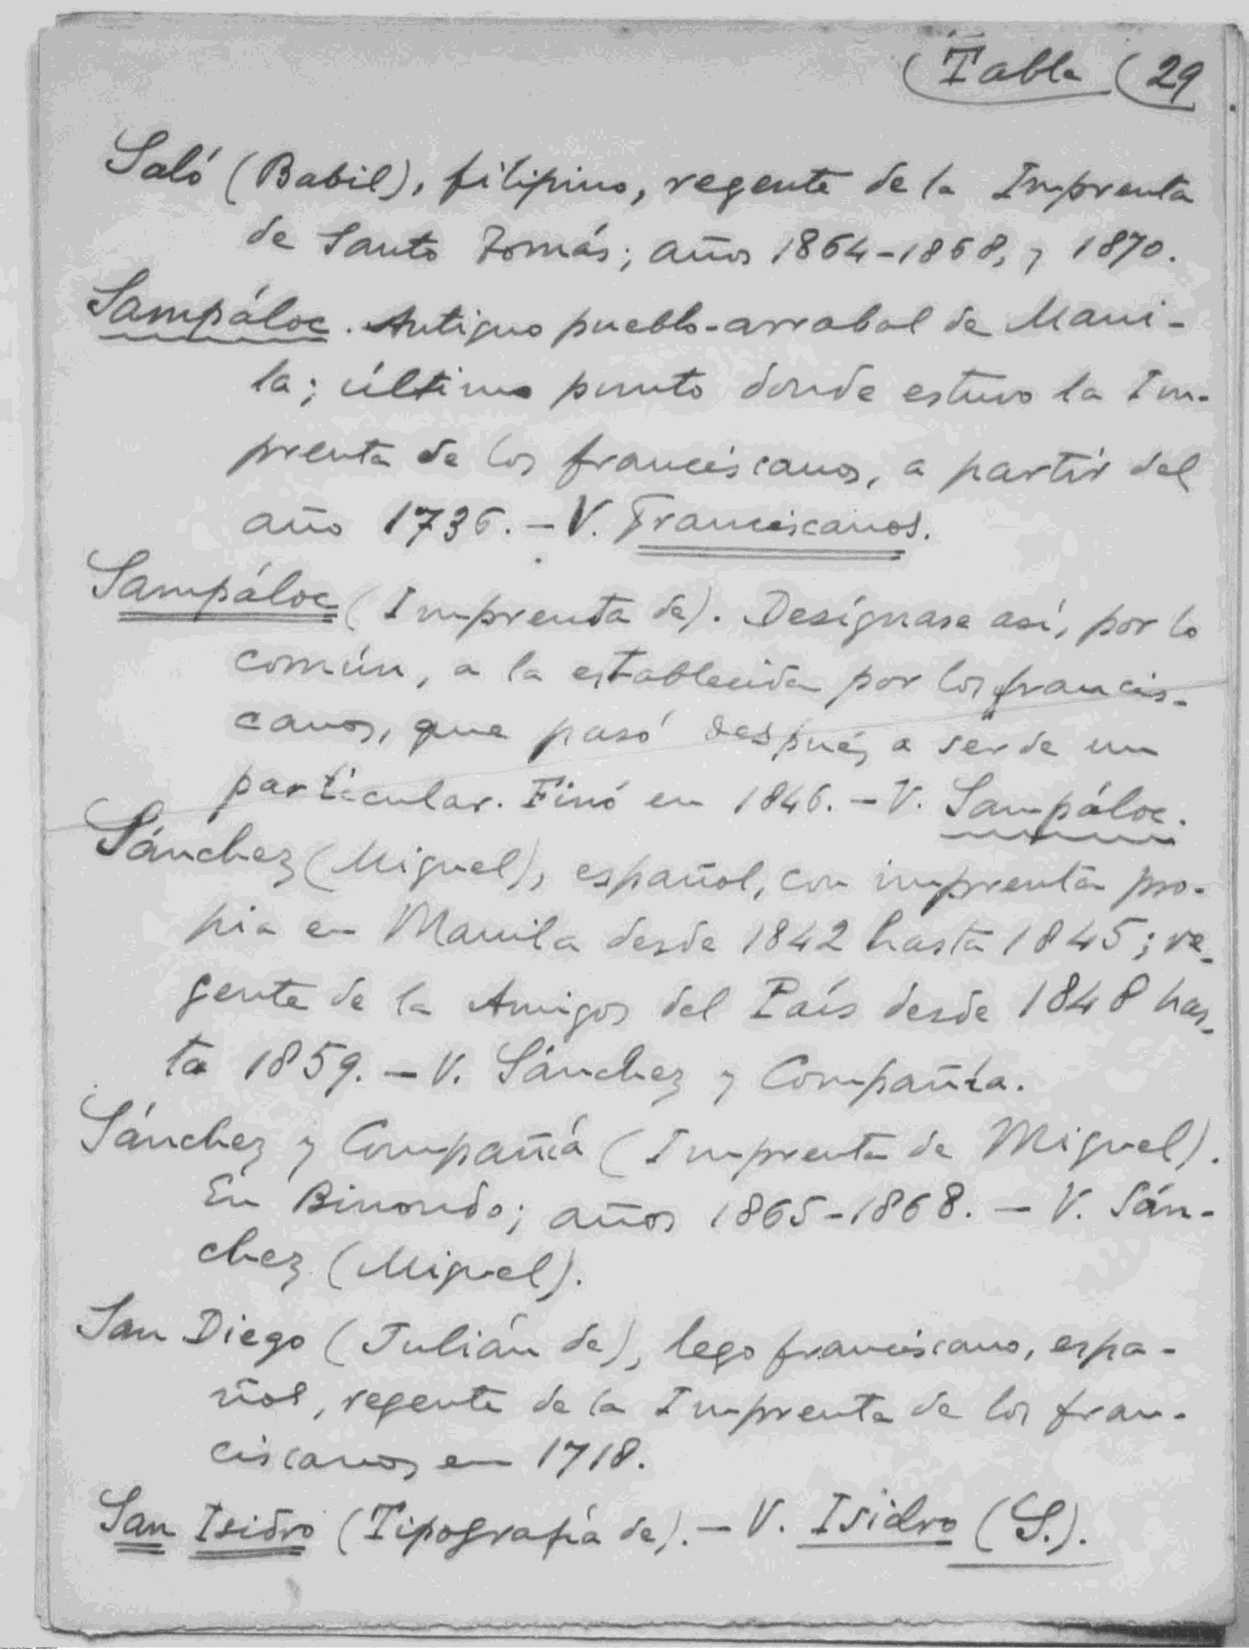 Tabla 29
Saló (Babil), filipino, regente de la Imprenta
de Santo Tomás; años 1864-1868, y 1870.
Sampáloc. Antiguo pueblo-arrabal de Mani-
la; último punto donde estuvo la Im-
prenta de los franciscanos, a partir del
año 1736. - V. Franciscanos.
Sampáloc (Imprenta de). Desígnase así, por lo
común, a la establecida por los francis-
canos, que pasó después a ser de un
particular. Finó en 1846. - V. Sampáloc.
Sánchez (Miguel), español, con imprenta pro-
pia en Manila desde 1842 hasta 1845; re-
gente de la Amigos del País desde 1848 has-
ta 1859. - V. Sánchez y Compañía.
Sánchez y Compañía (Imprenta de Miguel).
En Binondo; años 1865-1868. - V. Sán-
chez (Miguel).
San Diego (Julián de), lego franciscano, espa-
ñol, regente de la Imprenta de los fran-
ciscanos en 1718.
San Isidro (Tipografía de). - V. Isidro (S.).